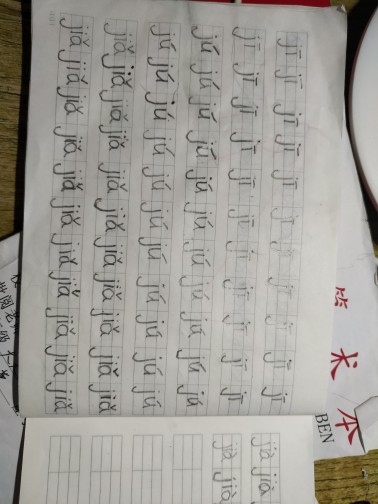 jī jī jī jī jī jī jī jī jī jī jī
jī jī jī jī jī jī jī jī jī jī jī
jú jú jú jú jú jú jú jú jú jú jú
jú jú jú jú jú jú jú jú jú jú jú
jiǎ jiǎ jiǎ jiǎ jiǎ jiǎ jiǎ jiǎ jiǎ jiǎ jiǎ
jiǎ jiǎ jiǎ jiǎ jiǎ jiǎ jiǎ jiǎ jiǎ jiǎ jiǎ
jià jià
jià jià
术 本
BEN